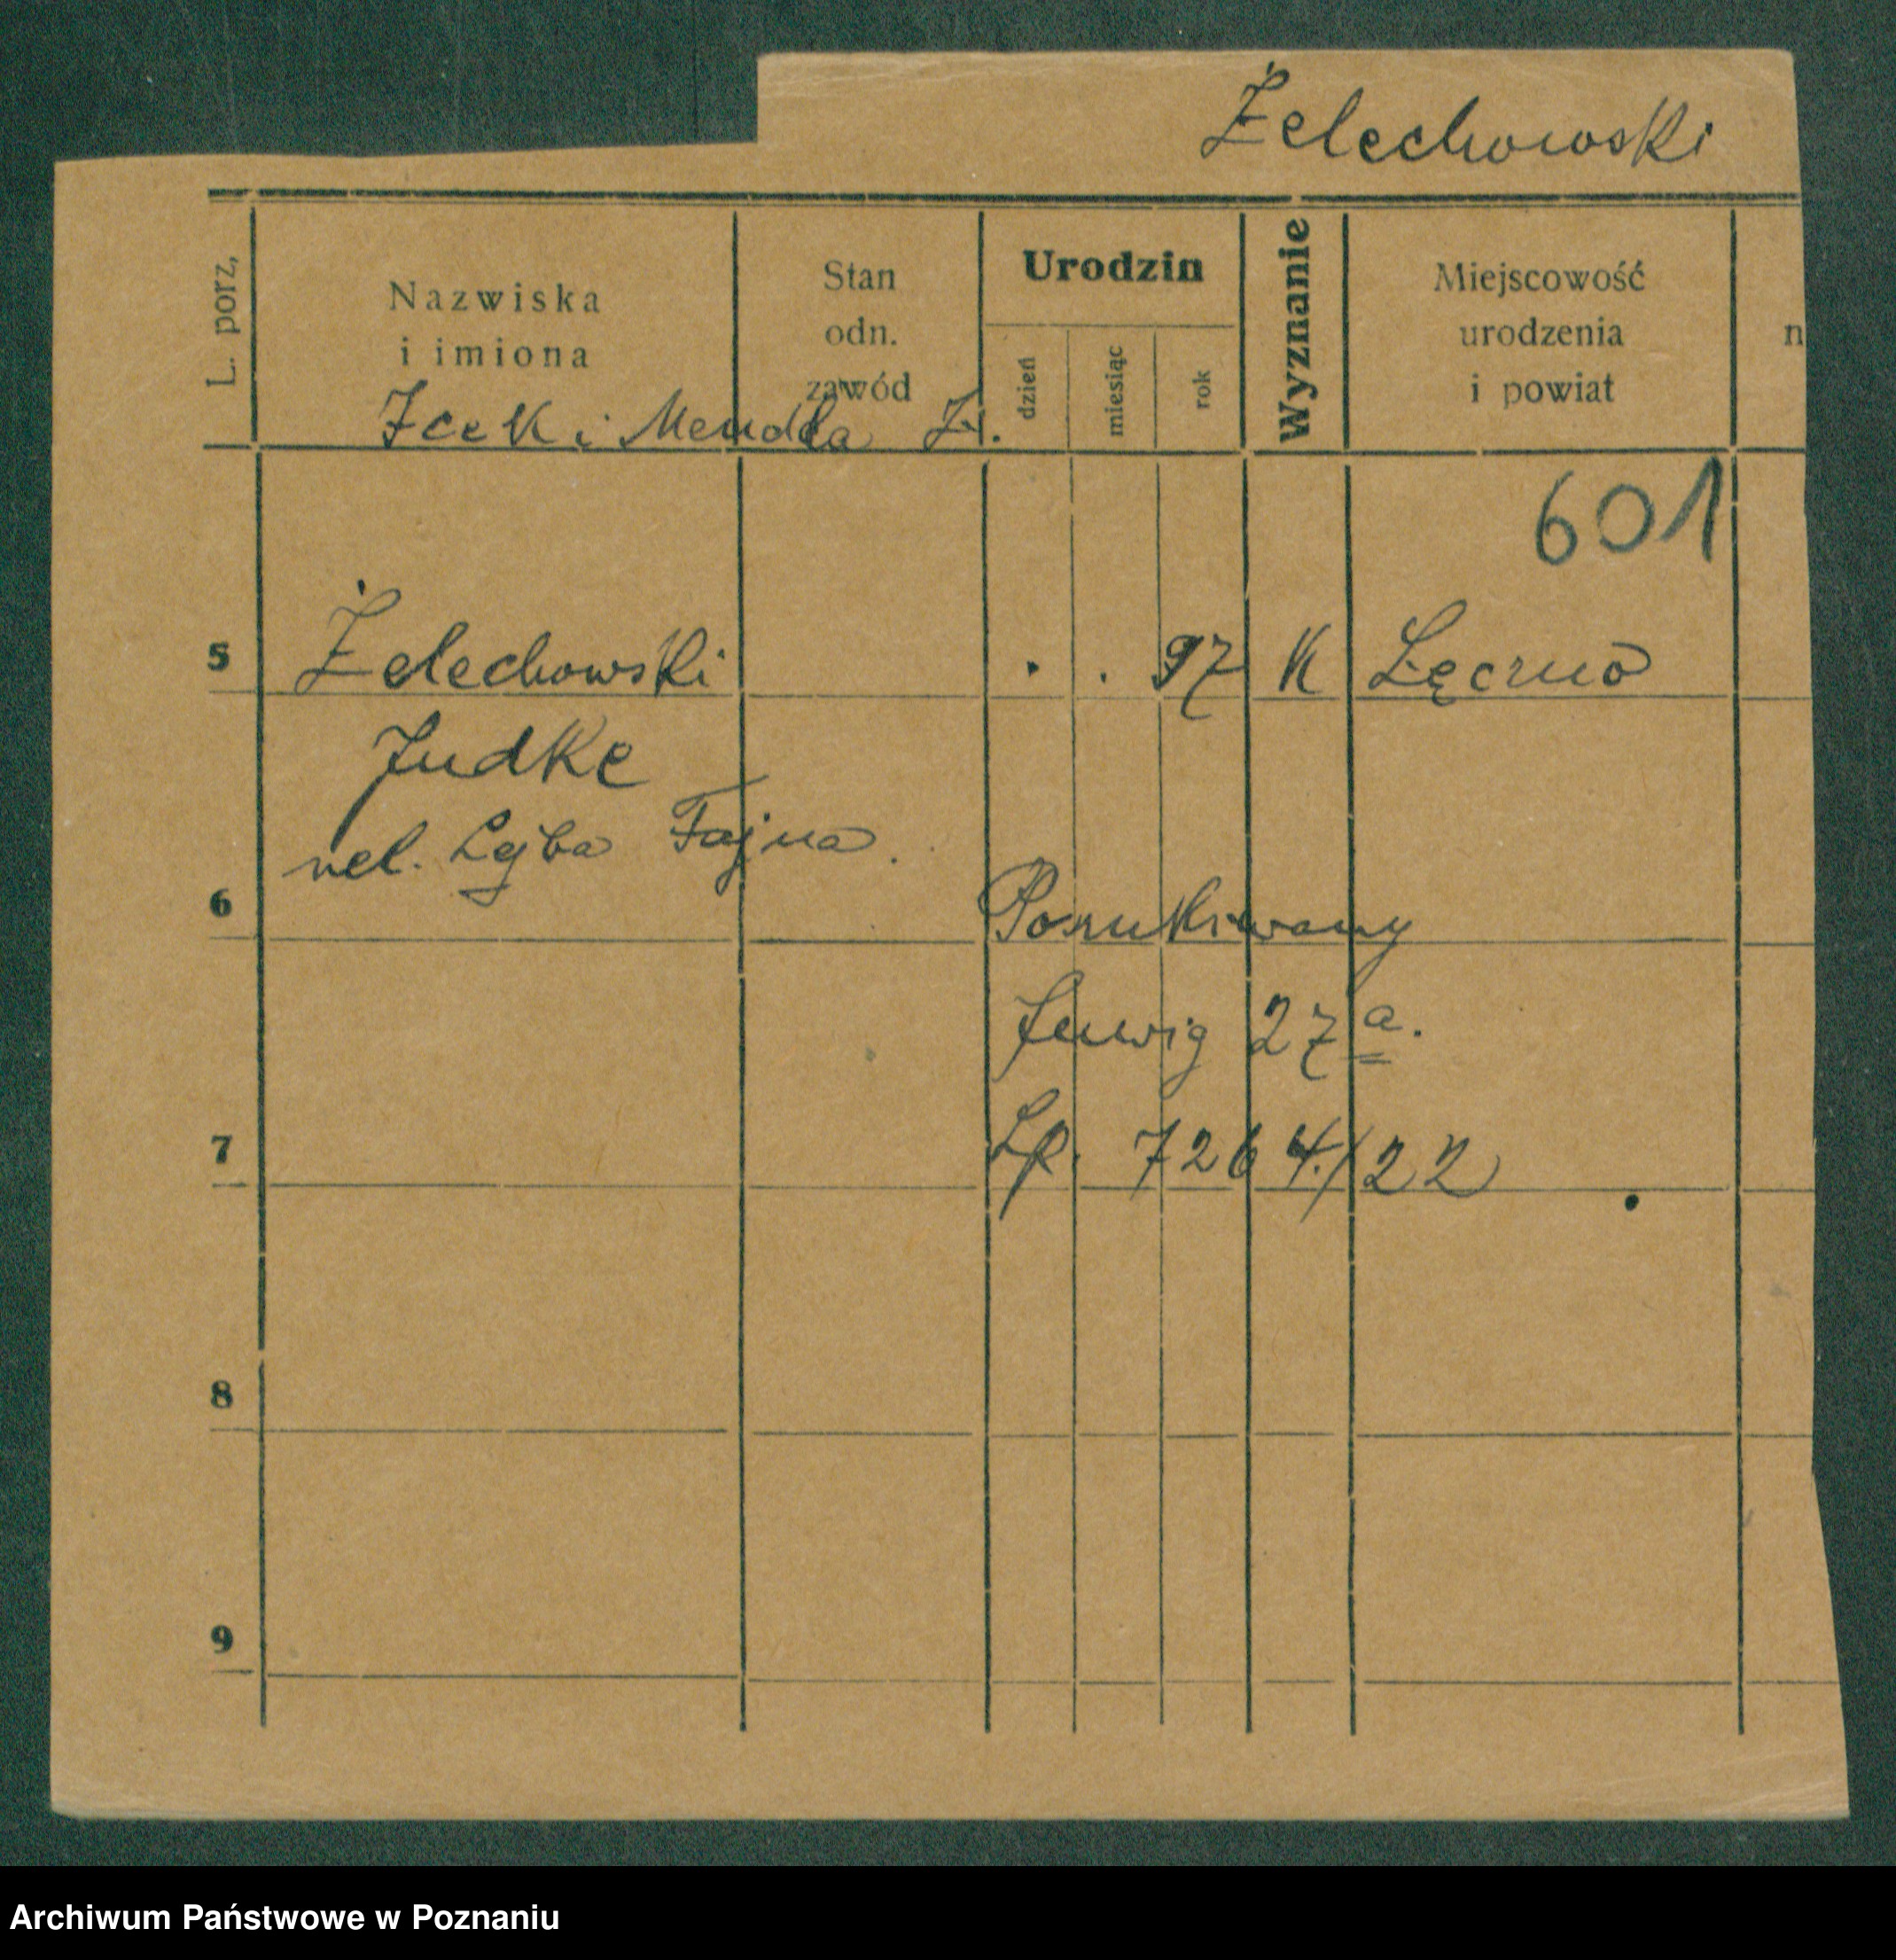 Żelechowski
L. porz,
Nazwiska
i imiona
Stan
odn.
zawód
Urodzin
dzień
miesiąc
rok
Wyznanie
Miejscowość
urodzenia
i powiat
n
Icek i Mendla Ż.
601
5 Żelechowski . . 97 K Łęczno
Judke
vel. Lejba Fajna.
6 Poszukiwany
27 a.
7 Lp. 7264/22
8
9
Archiwum Państwowe w Poznaniu